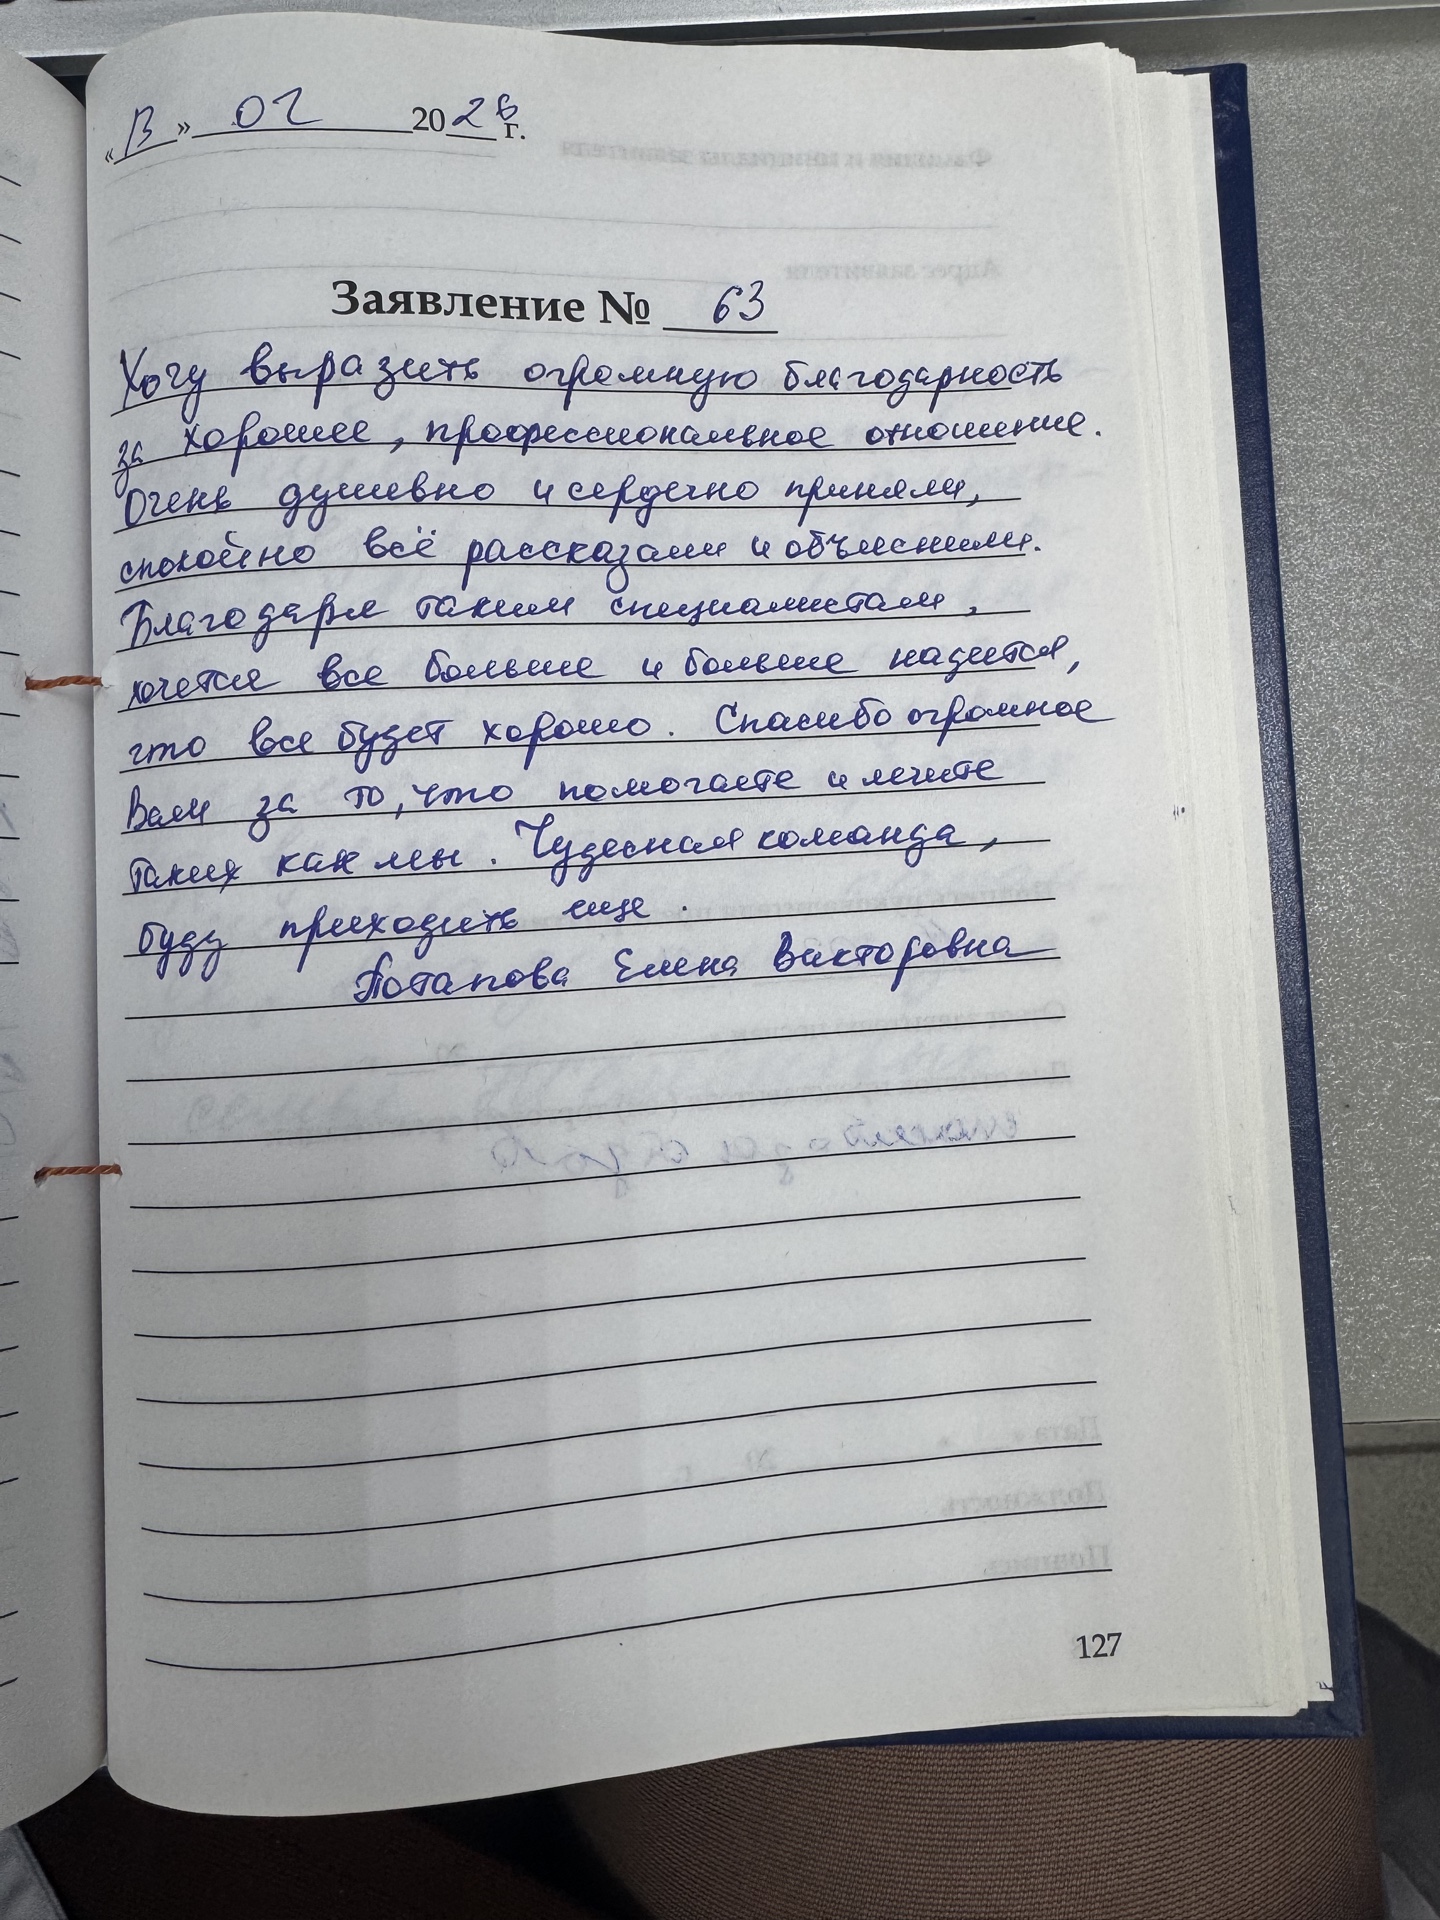 «13» 02 2026 г.
Заявление № 63
Хочу выразить огромную благодарность
за хорошее, профессиональное отношение.
Очень душевно и сердечно приняли,
спокойно всё рассказали и объяснили.
Благодаря таким специалистам,
хочется все больше и больше надеится,
что все будет хорошо. Спасибо огромное
Вам за то, что помогаете и лечите
таких как мы. Чудесная команда,
буду приходить еще.
Потапова Елена Викторовна
127